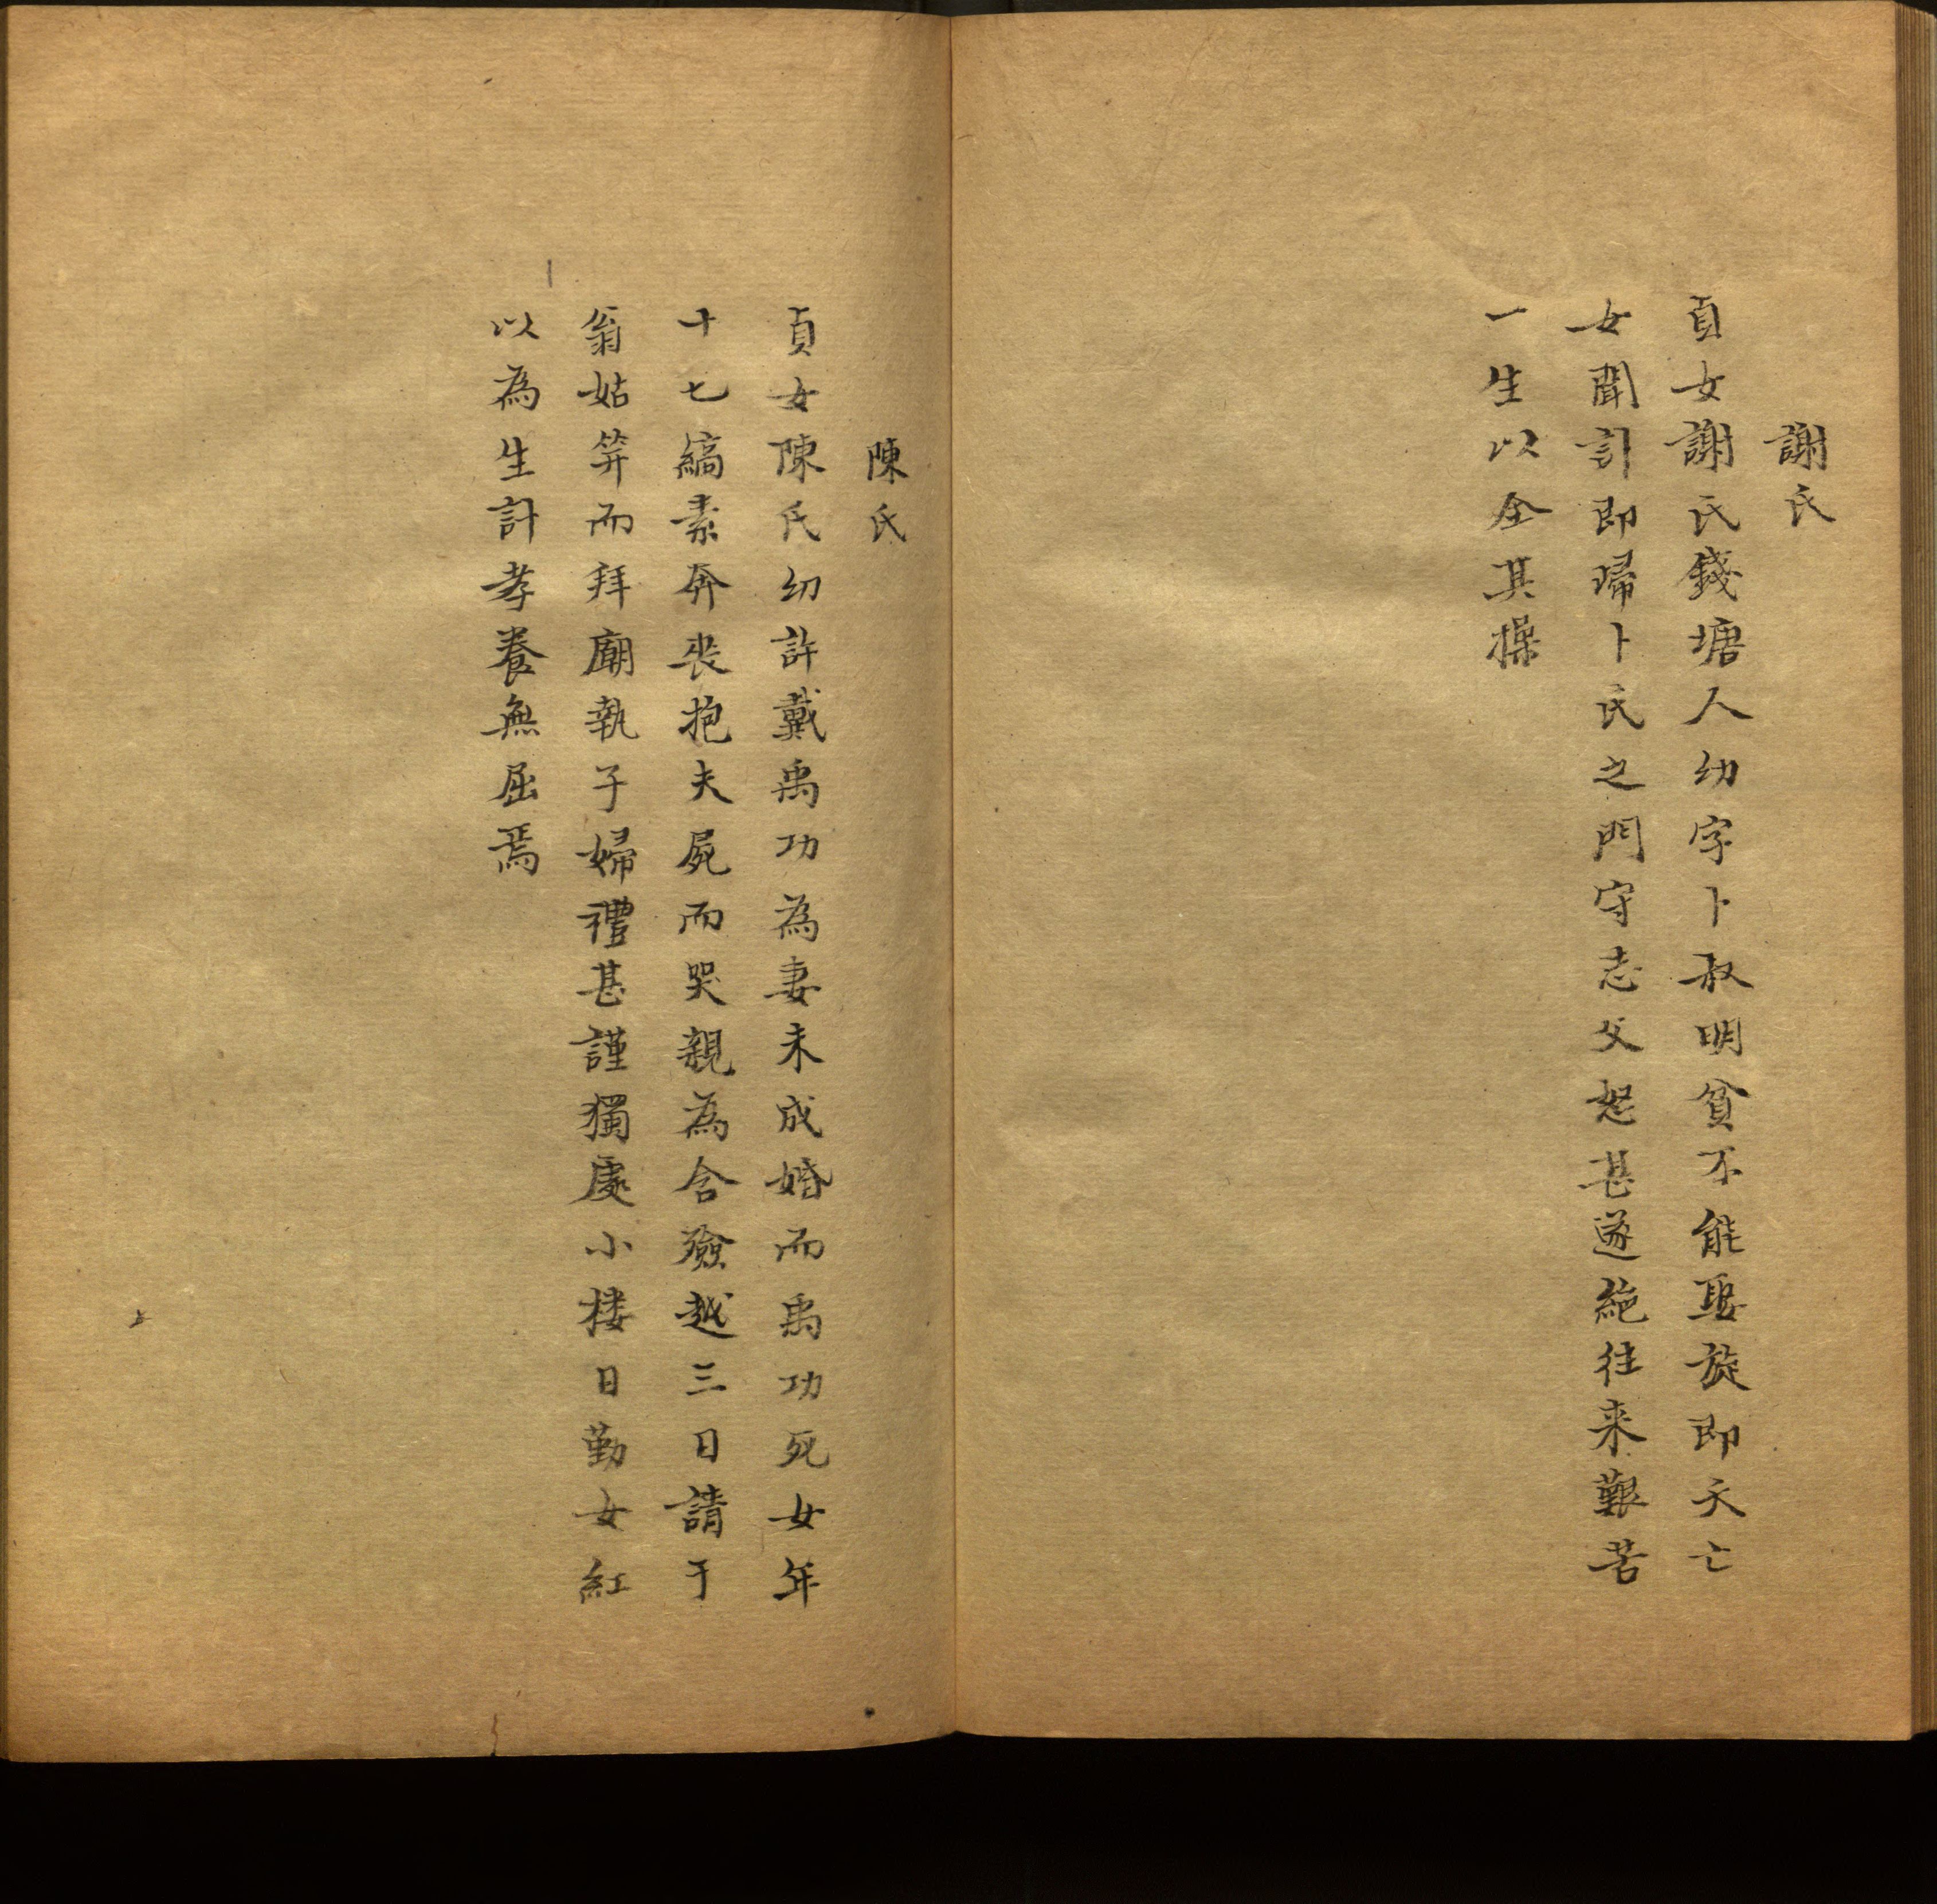 謝氏
貞女謝氏錢塘人幼字卜叔明貧不能娶旋即夭亡
女聞訃即歸卜氏之門守志父怒甚遂絕往来艱苦
一生以全其操
陳氏
貞女陳氏幼許戴禹功為妻未成婚而禹功死女年
十七縞素奔喪抱夫屍而哭親為含殮越三日請于
翁姑笄而拜廟執子婦禮甚謹獨處小樓日勤女紅
以為生計孝養無屈焉